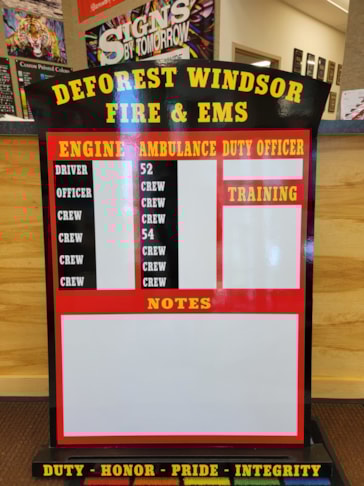 SIGNS
BY TOMORROW
Custom Painted Color
DEFOREST WINDSOR
FIRE & EMS
ENGINE AMBULANCE DUTY OFFICER
DRIVER 52
OFFICER CREW
CREW CREW
CREW CREW
TRAINING
CREW 54
CREW CREW
CREW CREW
CREW
NOTES
DUTY - HONOR - PRIDE - INTEGRITY